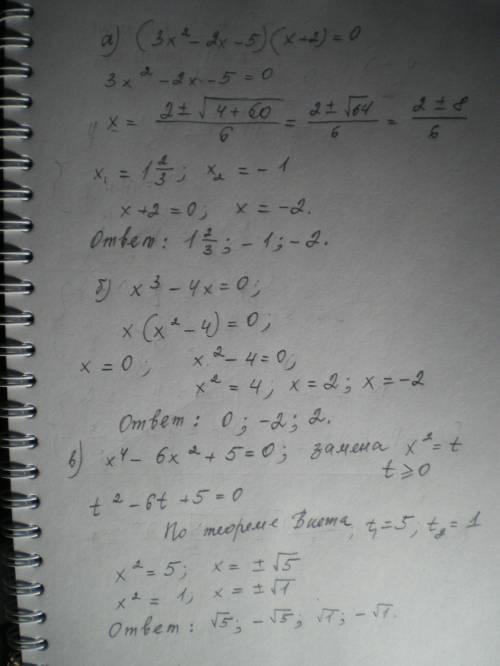 а) (3x² - 2x - 5)(x + 2) = 0
3x² - 2x - 5 = 0
x = (2 ± √(4 + 60))/6 = (2 ± √64)/6 = (2 ± 8)/6
x₁ = 1 2/3; x₂ = - 1
x + 2 = 0; x = -2.
Ответ: 1 2/3; - 1; - 2.
б) x³ - 4x = 0;
x (x² - 4) = 0;
x = 0; x² - 4 = 0;
x² = 4; x = 2; x = -2
Ответ: 0; -2; 2.
в) x⁴ - 6x² + 5 = 0; замена x² = t
t ≥ 0
t² - 6t + 5 = 0
По теореме Виета, t₁ = 5; t₂ = 1
x² = 5; x = ± √5
x² = 1, x = ± √1
Ответ: √5; - √5; √1; - √1.